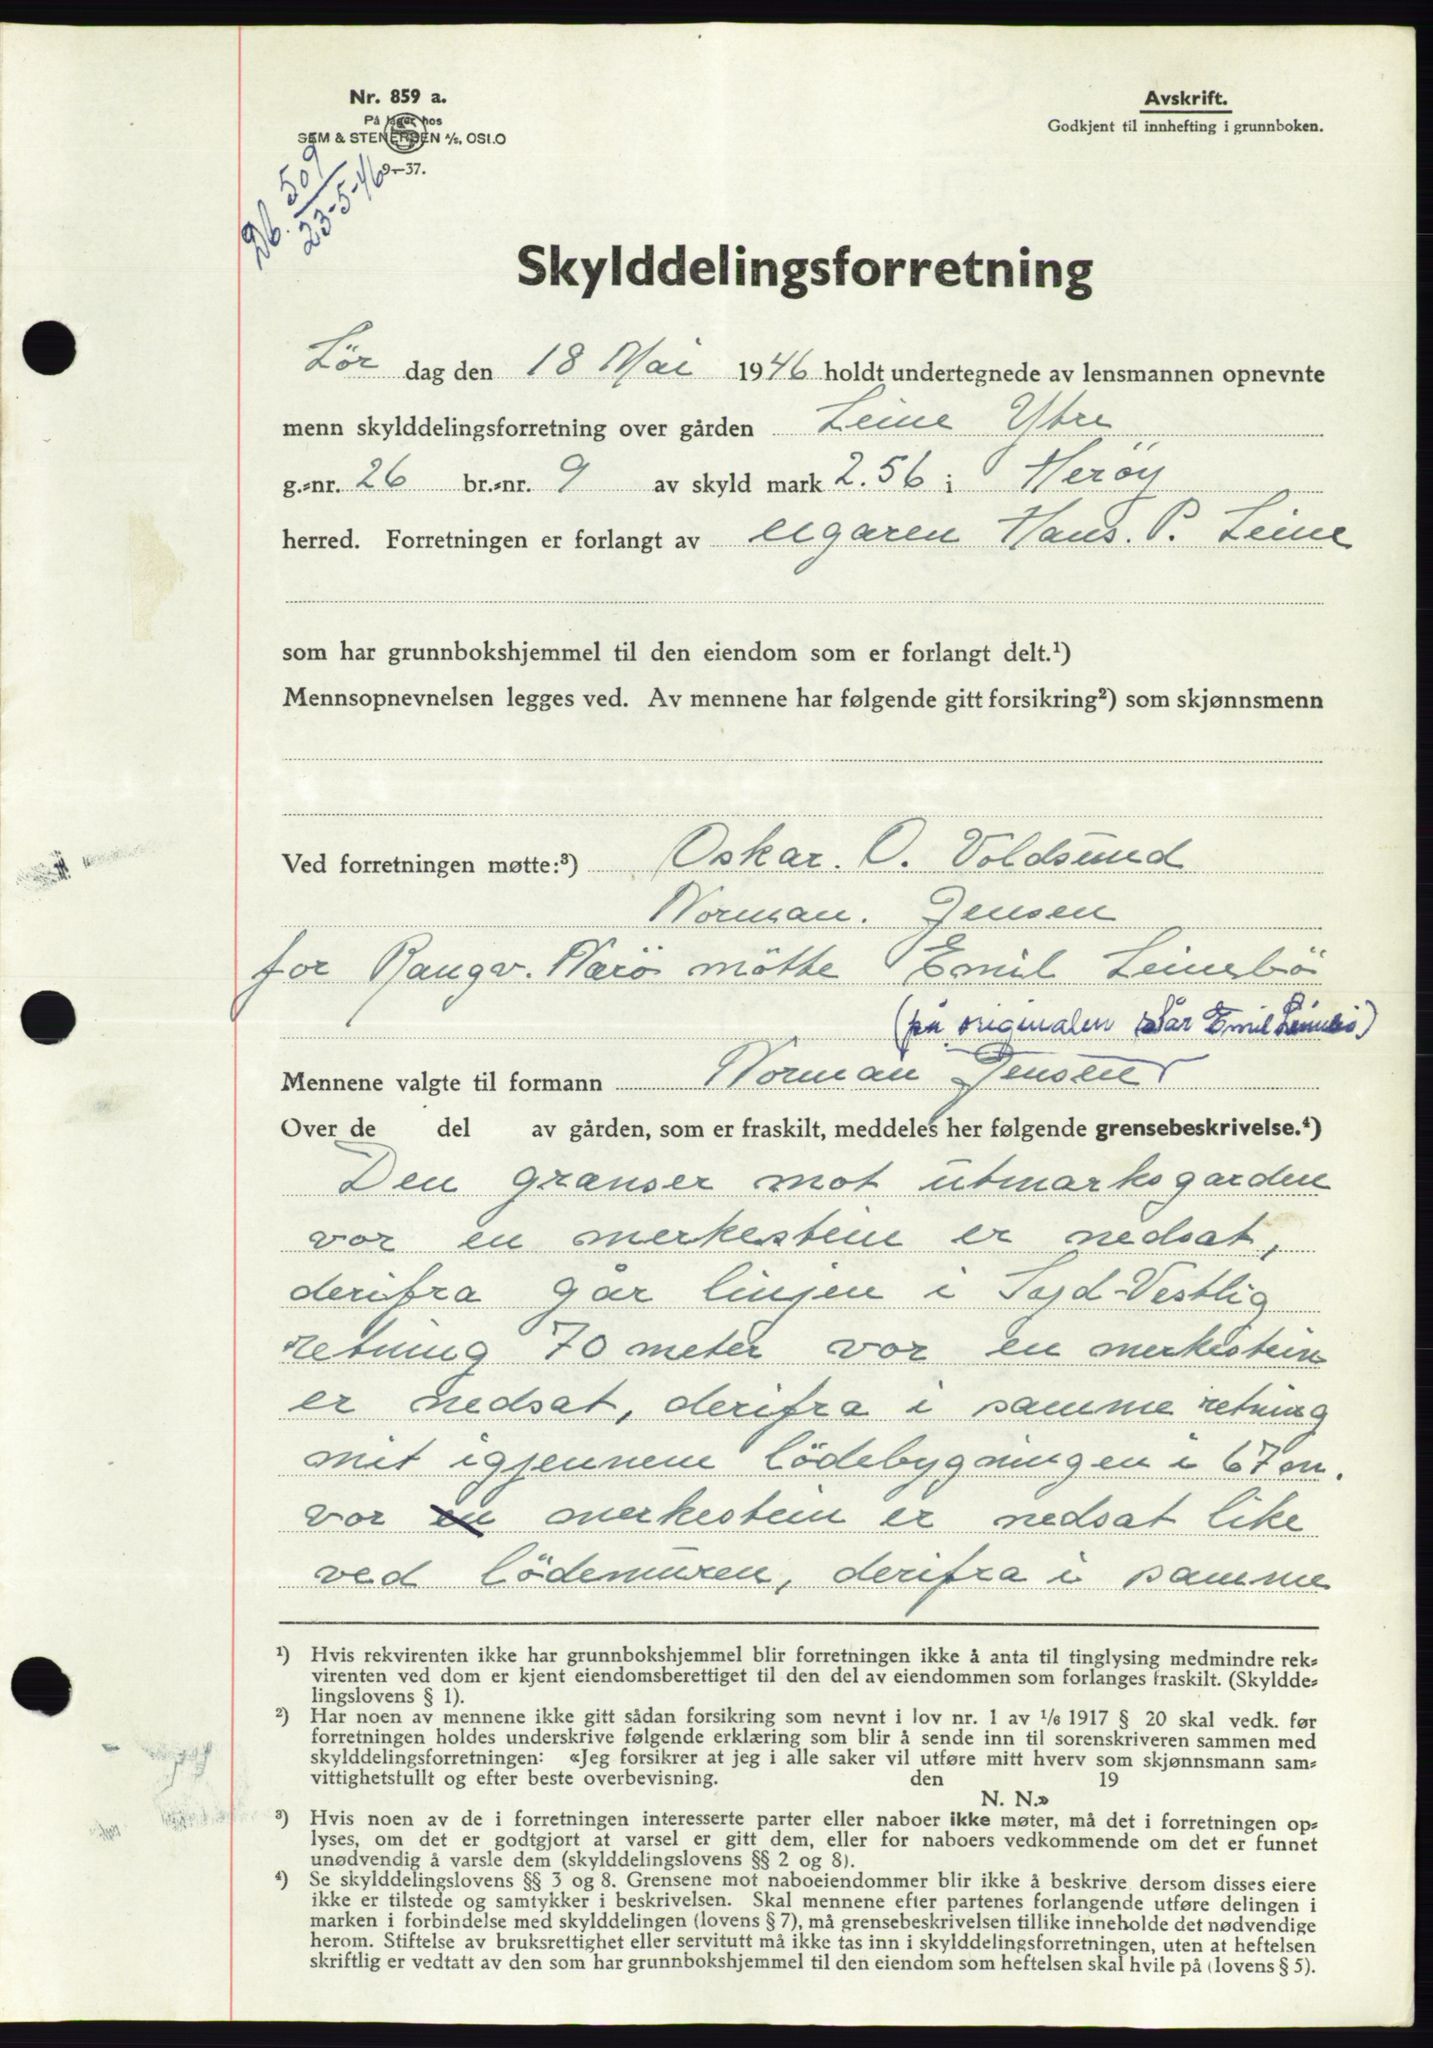 Nr. 859 a.
På lager hos
SEM & STENERSEN A/S, OSLO
9—37.
Avskrift.
Godkjent til innhefting i grunnboken.
Db. 509
23-5-46
Skylddelingsforretning
Lör dag den 18 Mai 1946 holdt undertegnede av lensmannen opnevnte
menn skylddelingsforretning over gården Leine Ytre
g.-nr. 26 br.-nr. 9 av skyld mark 2.56 i Heröy
herred. Forretningen er forlangt av eigaren Hans. P. Leine
som har grunnbokshjemmel til den eiendom som er forlangt delt.¹)
Mennsopnevnelsen legges ved. Av mennene har følgende gitt forsikring²) som skjønnsmenn
Ved forretningen møtte:³) Oskar. O. Voldsund
Norman. Jensen
for Rangv. Narö mötte Emil Leinebö
(på originalen står Emil Leinebö)
Mennene valgte til formann Norman Jensen
Over de del av gården, som er fraskilt, meddeles her følgende grensebeskrivelse.⁴)
Den granser mot utmarksgarden
vor en merkestein er nedsat,
derifra går linjen i Syd-Vestlig
retning 70 meter vor en merkestein
er nedsat, derifra i samme retning
mit igjennem lödebygningen i 67 m.
vor en merkestein er nedsat like
ved lödemuren, derifra i samme
¹) Hvis rekvirenten ikke har grunnbokshjemmel blir forretningen ikke å anta til tinglysing medmindre rek-
virenten ved dom er kjent eiendomsberettiget til den del av eiendommen som forlanges fraskilt. (Skyldde-
lingslovens § 1).
²) Har noen av mennene ikke gitt sådan forsikring som nevnt i lov nr. 1 av 1/6 1917 § 20 skal vedk. før
forretningen holdes underskrive følgende erklæring som blir å sende inn til sorenskriveren sammen med
skylddelingsforretningen: «Jeg forsikrer at jeg i alle saker vil utføre mitt hverv som skjønnsmann sam-
vittighetsfullt og efter beste overbevisning. den 19
N. N.»
³) Hvis noen av de i forretningen interesserte parter eller naboer ikke møter, må det i forretningen op-
lyses, om det er godtgjort at varsel er gitt dem, eller for naboers vedkommende om det er funnet
unødvendig å varsle dem (skylddelingslovens §§ 2 og 8).
⁴) Se skylddelingslovens §§ 3 og 8. Grensene mot naboeiendommer blir ikke å beskrive dersom disses eiere
ikke er tilstede og samtykker i beskrivelsen. Skal mennene efter partenes forlangende utføre delingen i
marken i forbindelse med skylddelingen (lovens § 7), må grensebeskrivelsen tillike inneholde det nødvendige
herom. Stiftelse av bruksrettighet eller servitutt må ikke tas inn i skylddelingsforretningen, uten at heftelsen
skriftlig er vedtatt av den som har grunnbokshjemmel til den eiendom som heftelsen skal hvile på (lovens § 5).